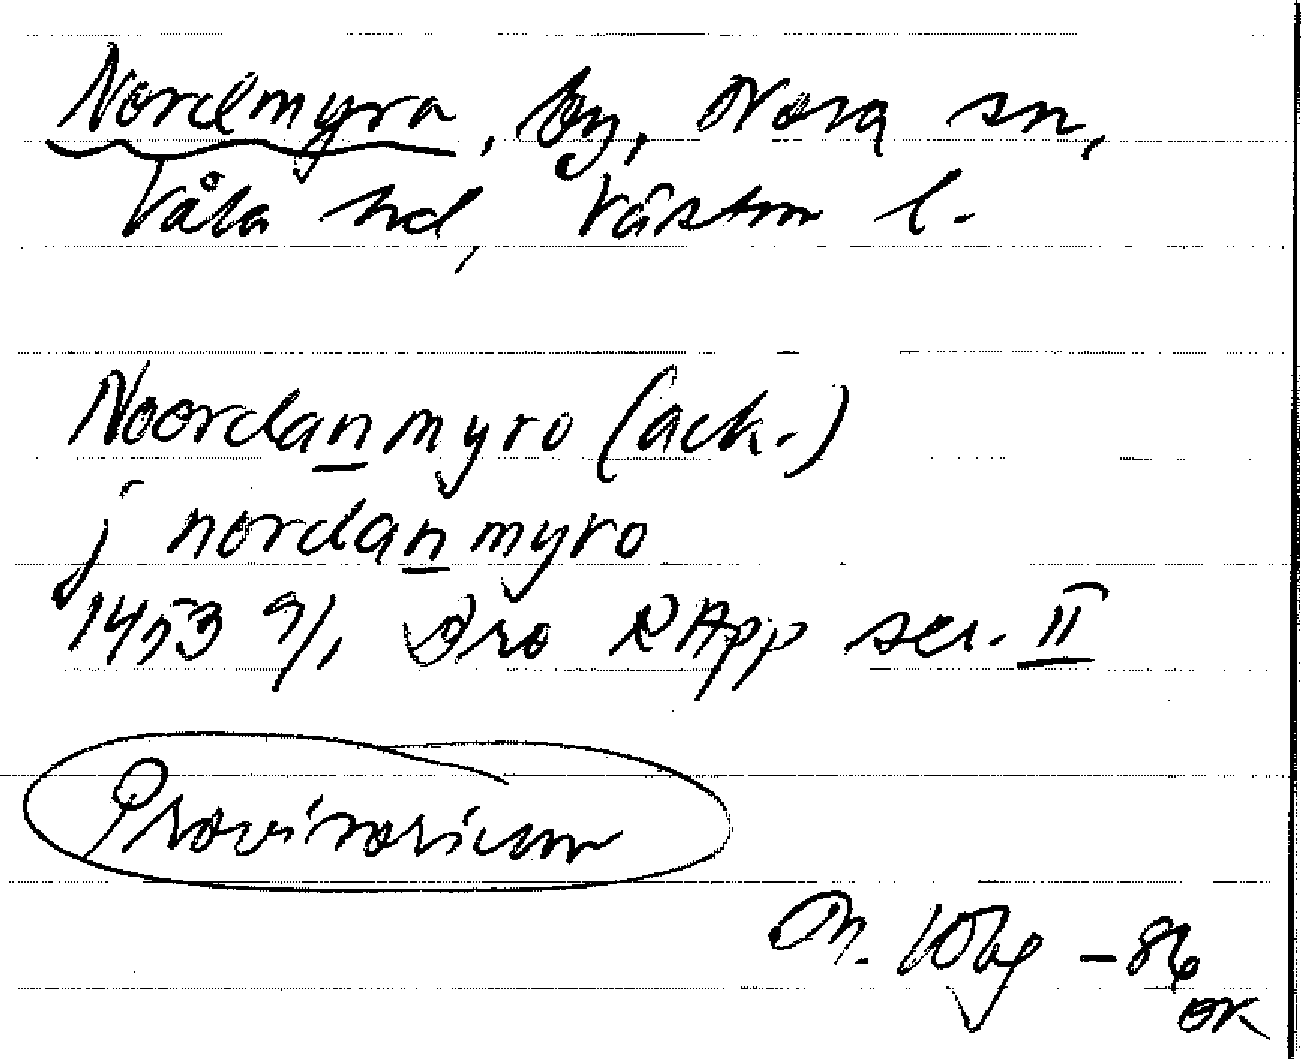 Nordmyra, by, Nora sn,
Våla hd, Västm l.
Noordanmyro (ack.)
j nordanmyro
1453 9/1 Oro RApp ser. II
Provisorium
M. Wbg -86
OK